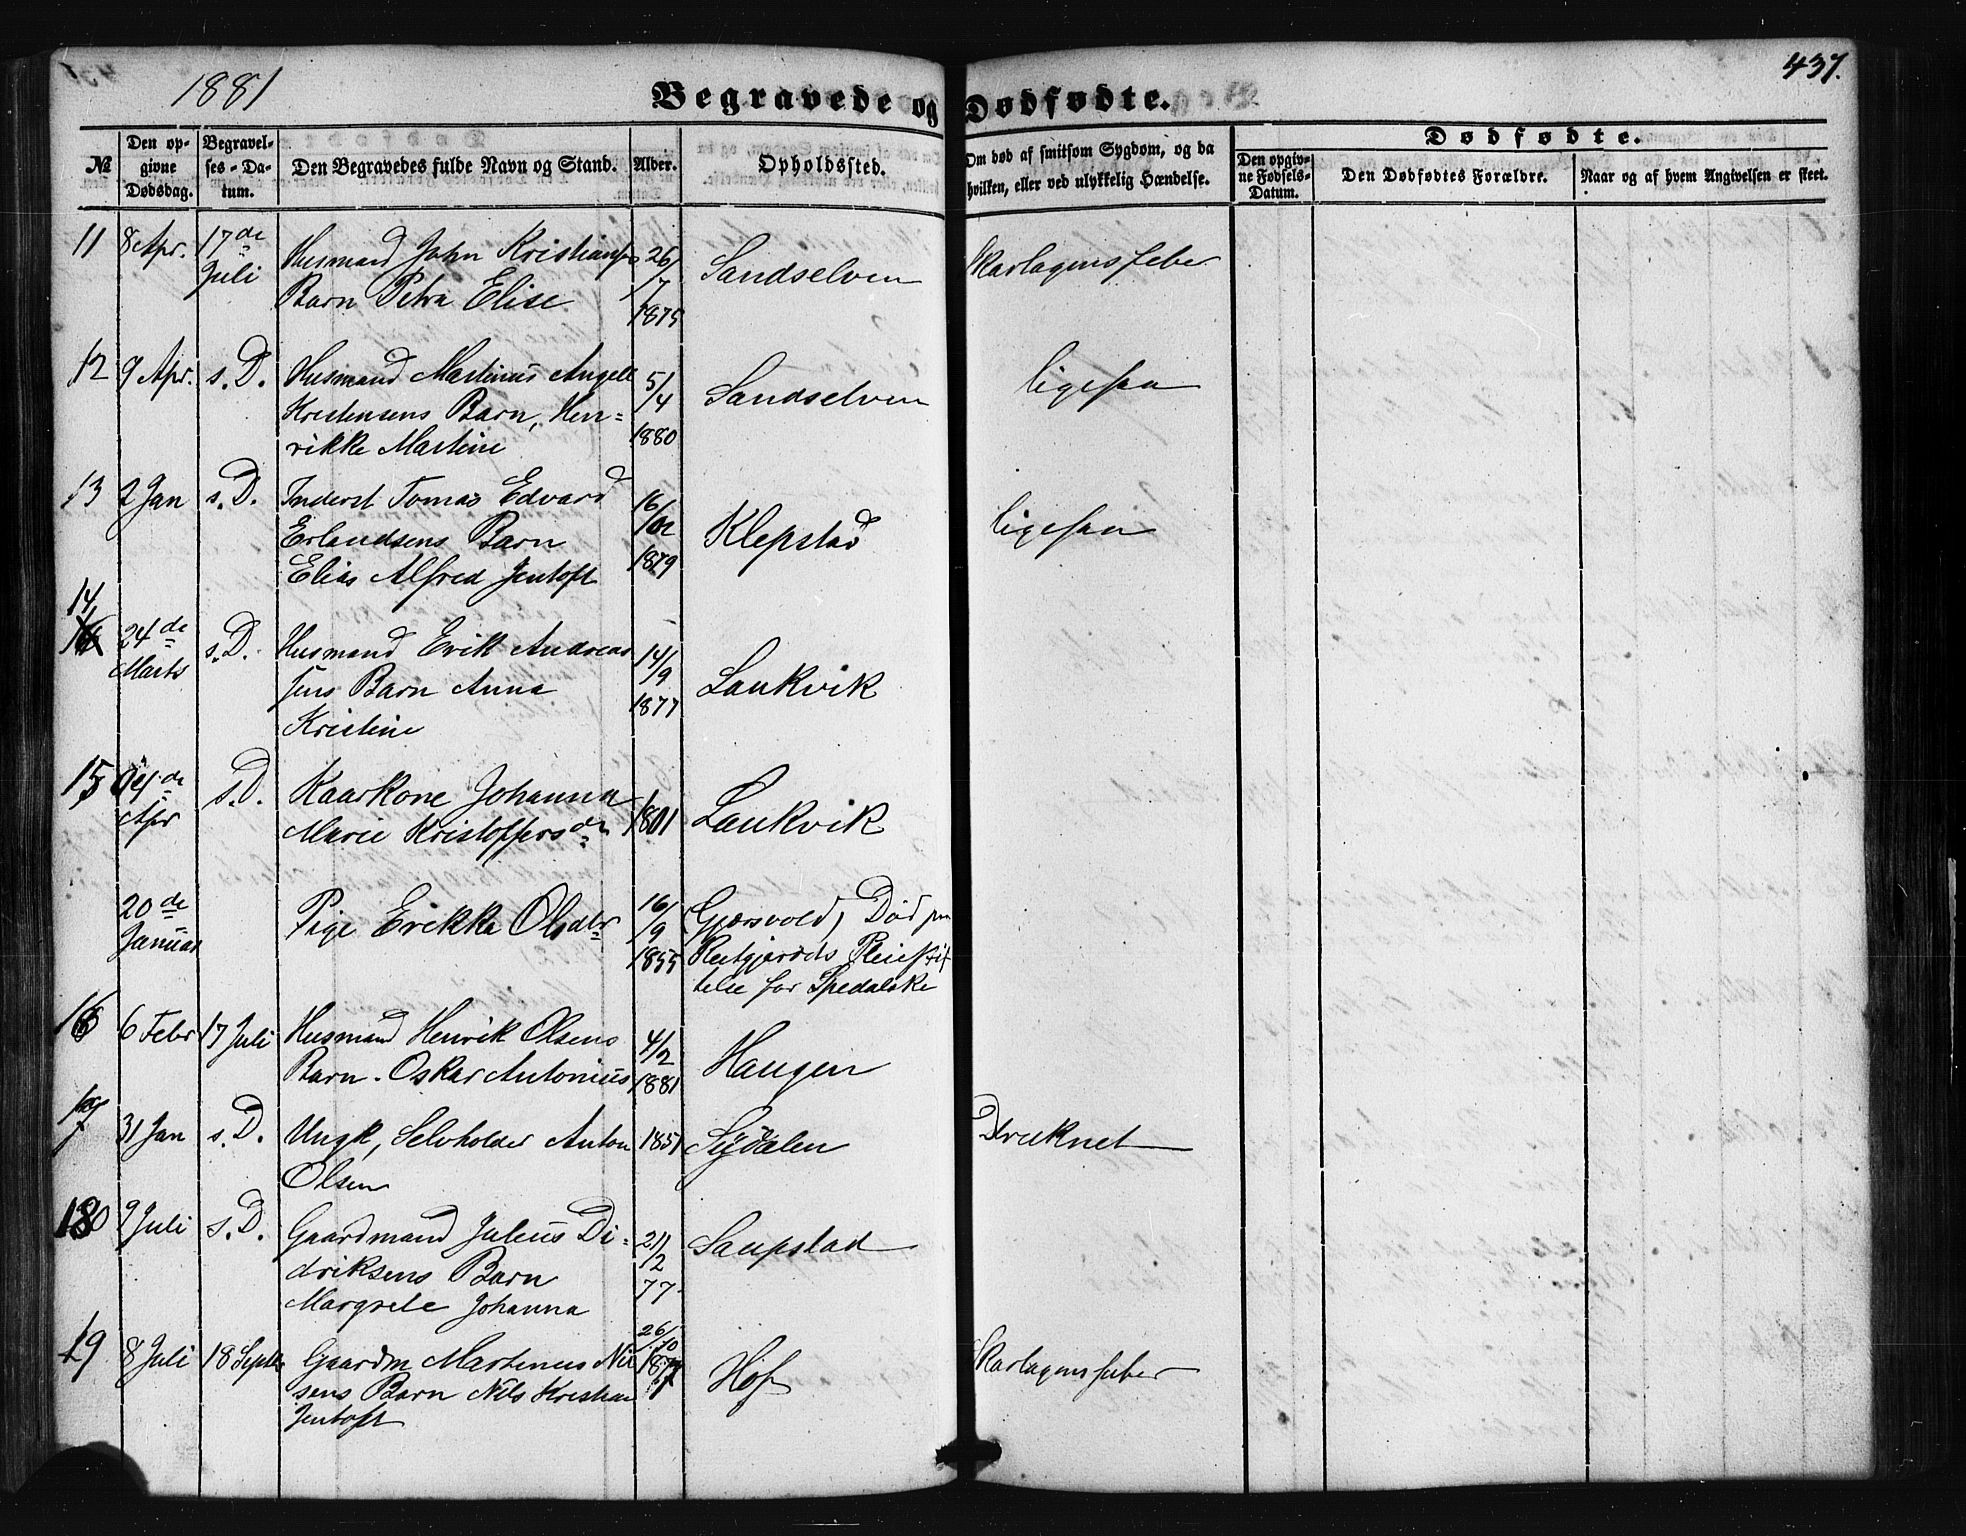 1881
437.
Begravede og Dødfødte.
№
Den opgivne Dødsdag.
Begravelses-Datum.
Den Begravedes fulde Navn og Stand.
Alder.
Opholdssted.
Om død af smitsom Sygdom, og da hvilken, eller ved ulykkelig Hændelse.
Dødfødte.
Den opgivne Fødsels-Datum.
Den Dødfødtes Forældre.
Naar og af hvem Angivelsen er skeet.
11 8 Apr. 17de Juli Husmand John Kristiansens 26/7 1875 Sandselven Skarlagensfeber
Barn Petra Elise
12 9 Apr. s. D. Husmand Martinus Angell 5/4 1880 Sandselven ligesaa
Kristensens Barn, Hen-
rikke Martine
13 2 Jan s. D. Inderst Tomas Edvard 16/ 1879 Klepstad ligesaa
Erlandsens Barn
Elias Alfred Jentoft
14 24de Marts s. D. Husmand Erik Andreas 14/9 1877 Laukvik
sens Barn Anna
Kristine
15 Apr s. D. Kaarkone Johanna 1801 Laukvik
Marie Kristoffersdr
20de Januar Pige Erikka Olsdtr 16/9 1855 (Gjærsvold) Død paa
Reitgjærdets Pleiestif-
telse for Spedalske
16 6 Febr 17 Juli Husmand Henrik Olsens 4/2 1881 Haugen
Barn. Oskar Antonius
17 31 Jan s. D. Ungk, Selvholder Anton 1851 Sydalen Druknet
Olsen
18 9 Juli s. D. Gaardmand Julius Di- 21/2 77 Saupstad
driksens Barn
Margrete Johanna
19 8 Juli 18 Septbr Gaardm Martinus Nil 26/10 1877 Hof Skarlagensfeber
sens Barn Nils Kristian
Jentoft